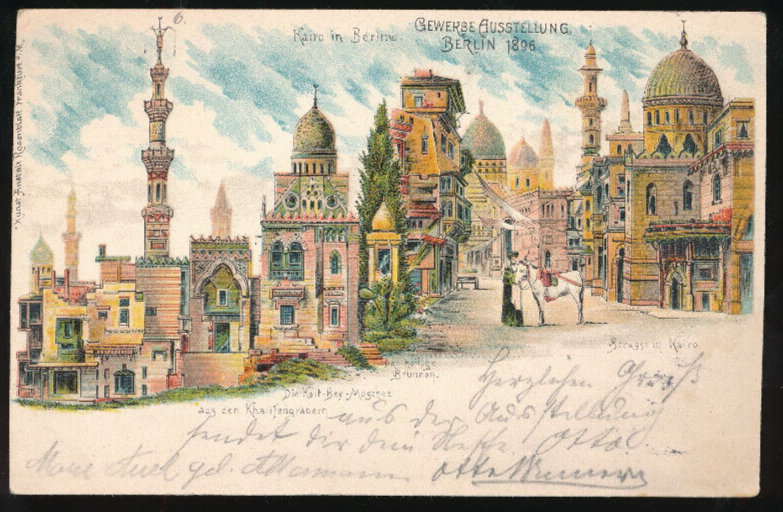 6.
Kairo in Berlin.
GEWERBE AUSSTELLUNG,
BERLIN 1896
Kunst Anstalt Rosenblatt Frankfurt a. M.
Strasse in Kairo.
Der heilige
Brunnen.
Die Kait-Bey-Moschee
aus den Khalifengräbern
Herzlichen Gruß
aus der Ausstellung
sendet dir dein Neffe Otto.
geb.
Otto